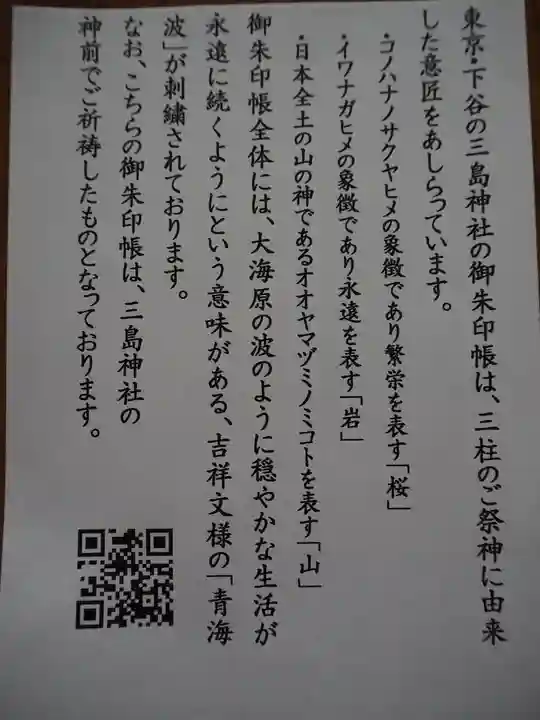 東京・下谷の三島神社の御朱印帳は、三柱のご祭神に由来
した意匠をあしらっています。
・コノハナノサクヤヒメの象徴であり繁栄を表す「桜」
・イワナガヒメの象徴であり永遠を表す「岩」
・日本全土の山の神であるオオヤマヅミノミコトを表す「山」
御朱印帳全体には、大海原の波のように穏やかな生活が
永遠に続くようにという意味がある、吉祥文様の「青海
波」が刺繍されております。
なお、こちらの御朱印帳は、三島神社の
神前でご祈祷したものとなっております。